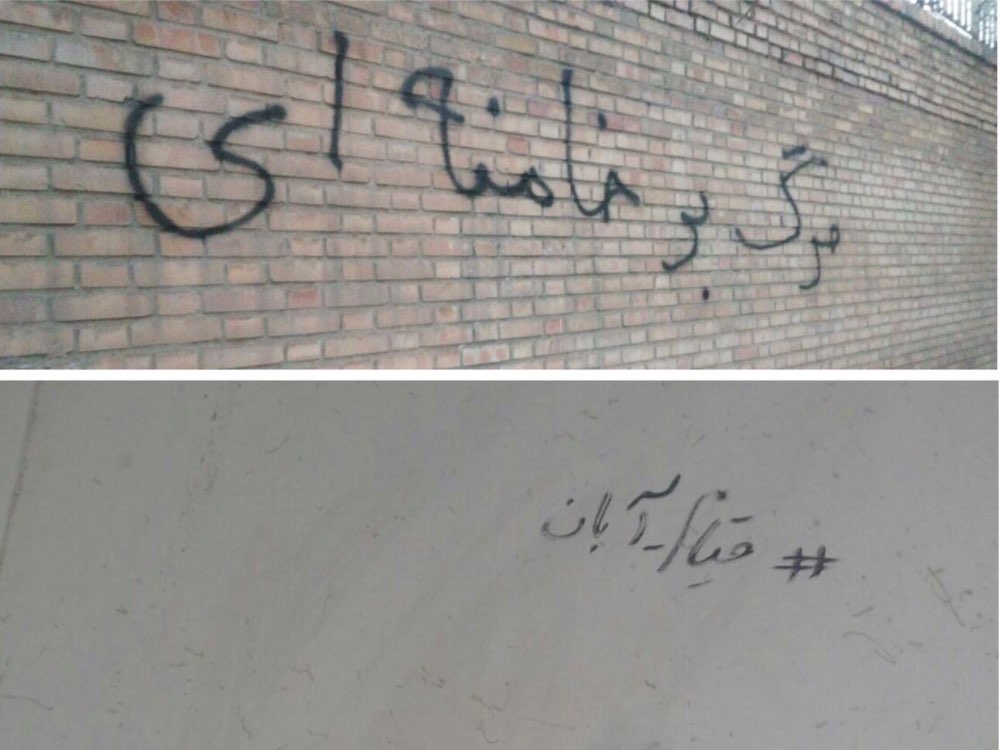 مرگ بر خامنه ای
# قیام_آبان